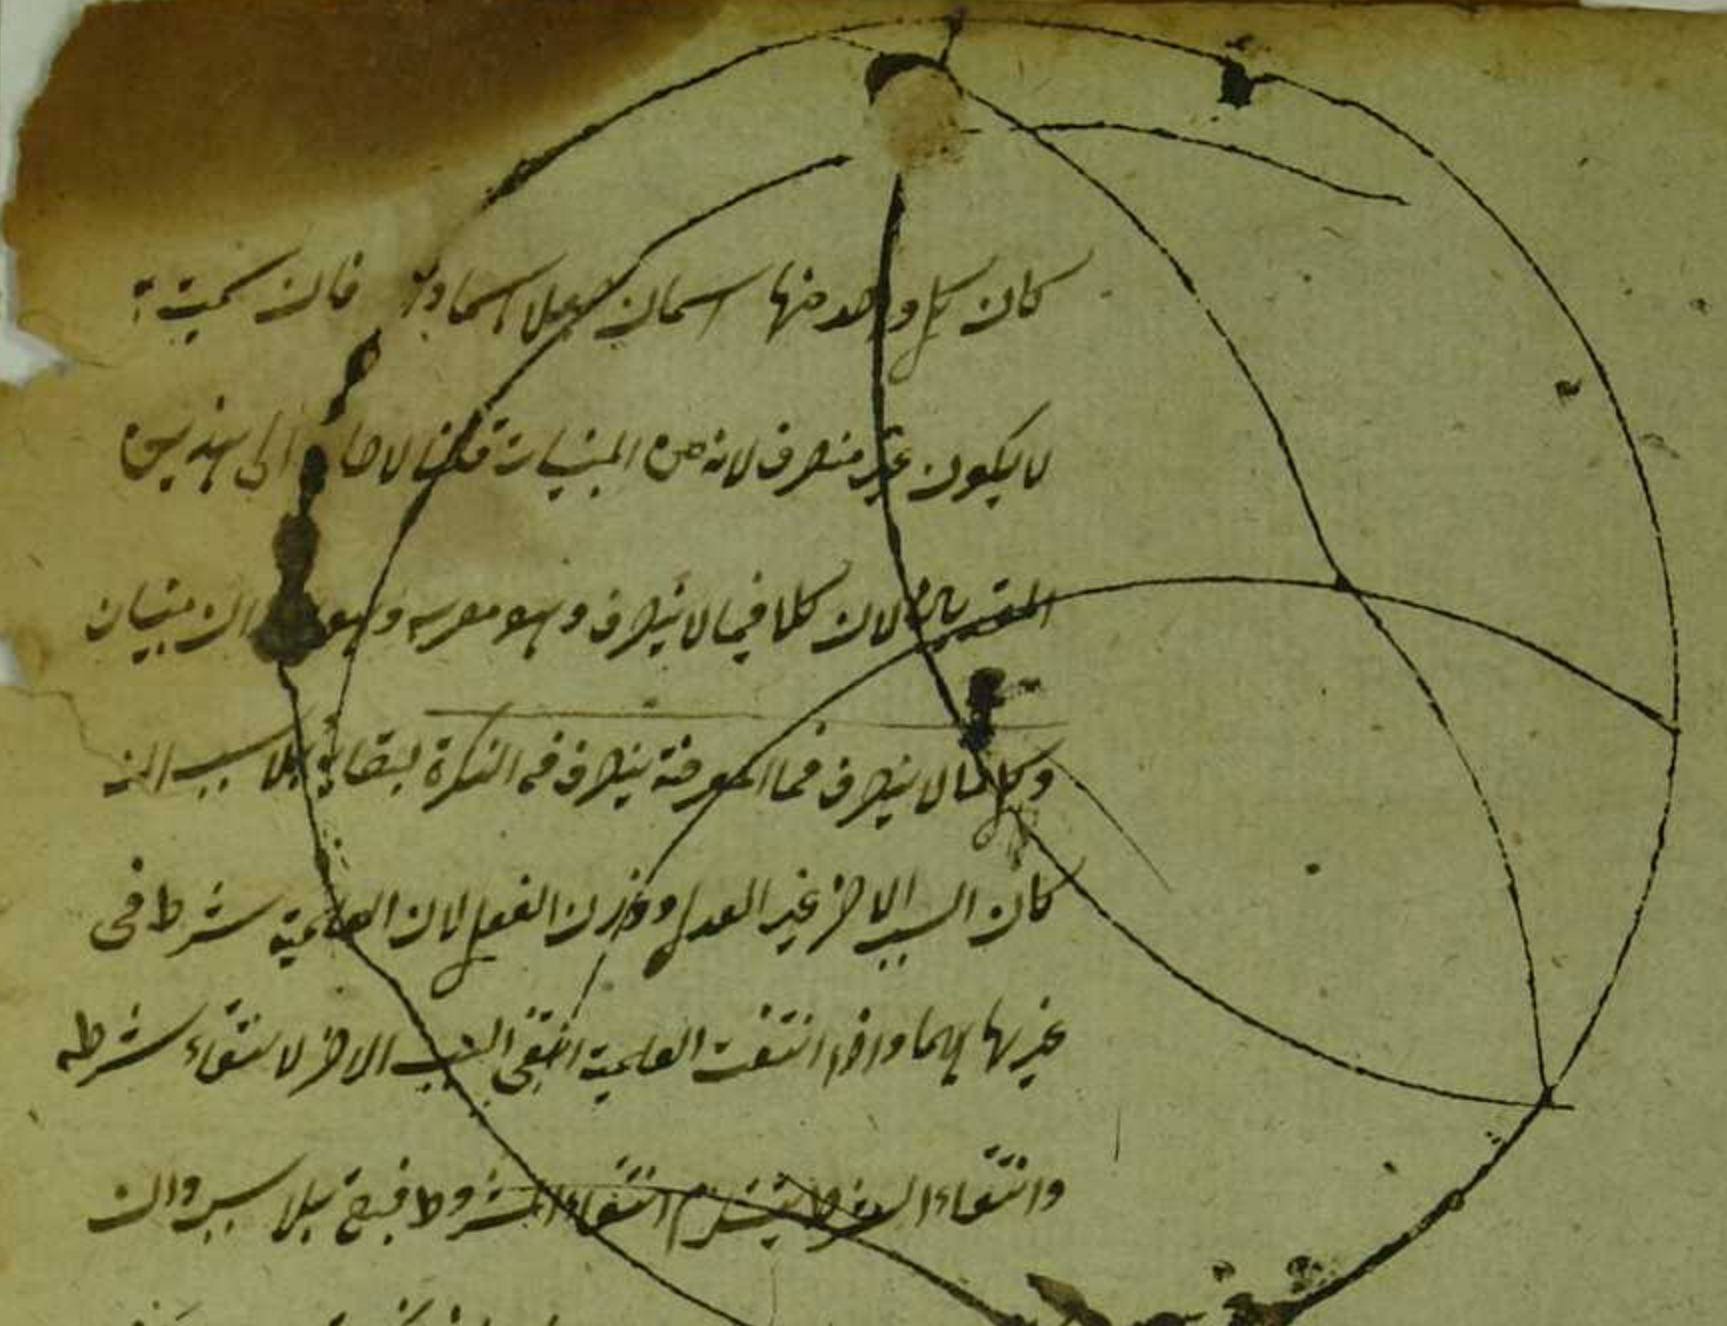 كان كل واحد منها اسمان جعلا اسما واحدا فان سميت به
لا يكون غير منصرف لانه من المبنيات قلنا لا حاجة الى هذين
لان كلامنا فيما لا ينصرف وهو معرب و مبنيان
وكل ما لا ينصرف في المعرفة ينصرف في النكرة لبقائه بلا سبب ان
كان السبب الاخر غير العدل ووزن الفعل لان العلمية شرط في
غيرهما واذا انتفت العلمية انتفى السبب الاخر لانتفاء شرطه
وانتفاء الشرط يستلزم انتفاء المشروط فبقى بلا سبب وان